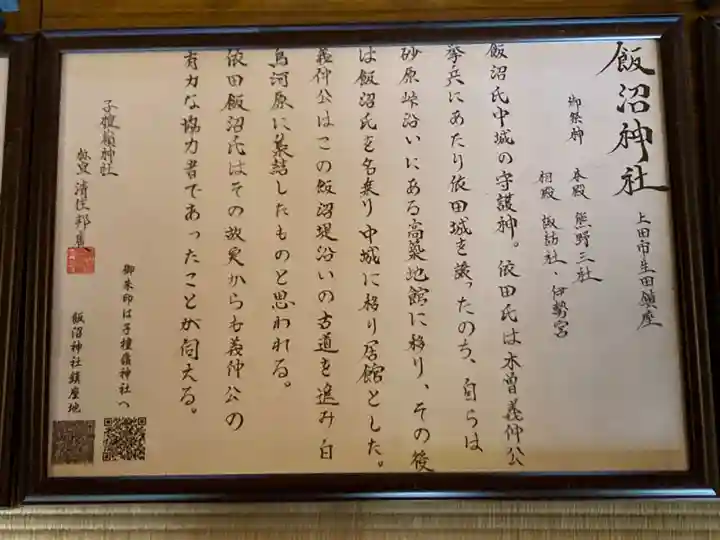 飯沼神社
上田市生田鎮座
御祭神 本殿 熊野三社
相殿 諏訪社・伊勢宮
飯沼氏中城の守護神。依田氏は木曽義仲公
挙兵にあたり依田城を譲ったのち、自らは
砂原峠沿いにある高築地館に移り、その後
は飯沼氏を名乗り中城に移り居館とした。
義仲公はこの飯沼堤沿いの古道を進み白
鳥河原に集結したものと思われる。
依田飯沼氏はその故実からも義仲公の
有力な協力者であったことが伺える。
子檀嶺神社
清住邦
御朱印は子檀嶺神社へ
飯沼神社鎮座地